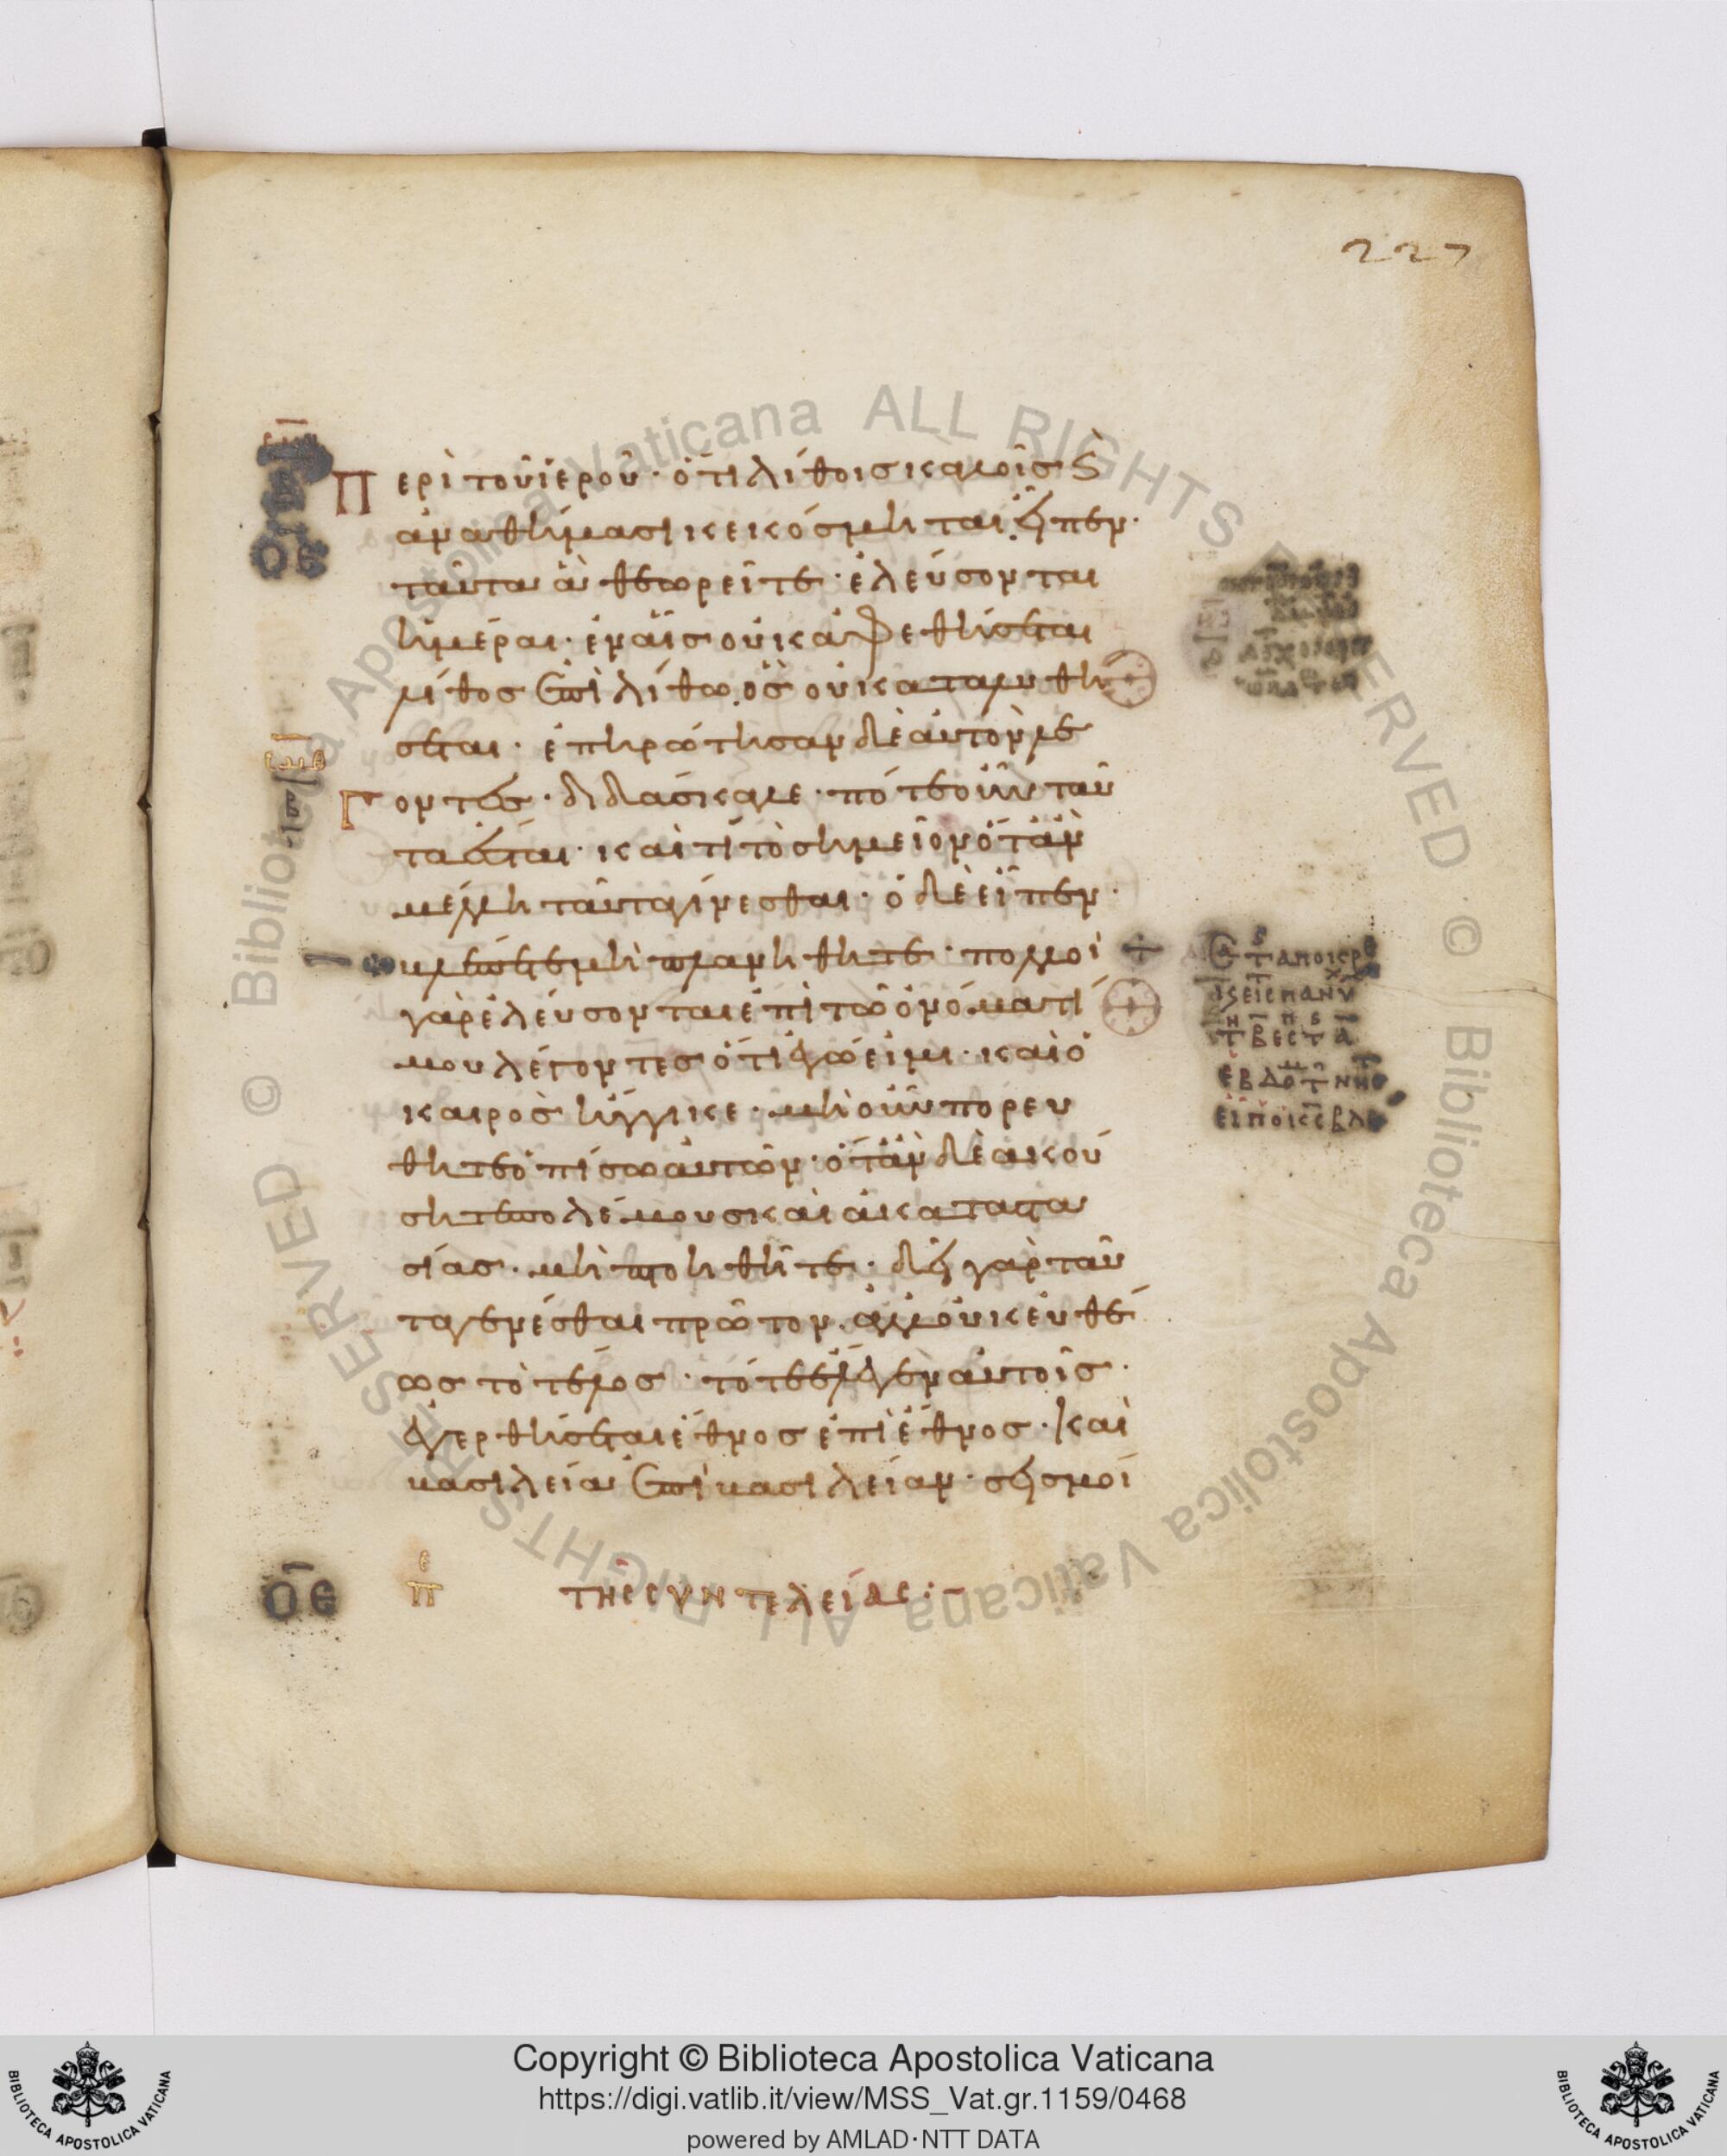 227
Περὶ τοῦ ἱεροῦ· ὅτι λίθοις καλοῖς ϗ
ἀναθήμασι κεκόσμηται, εἶπεν·
ταῦτα ἃ θεωρεῖτε· ἐλεύσονται
ἡμέραι· ἐν αἷς οὐκ ἀφεθήσεται
λίθος ἐπὶ λίθω, ὃς οὐ καταλυθή
σεται· ἐπηρώτησαν δὲ αὐτὸν λέ
Γοντες· διδάσκαλε· πότε οὖν ταῦ
τα ἔσται· καὶ τί τὸ σημεῖον ὅταν
μέλλη ταῦτα γίνεσθαι· ὁ δὲ εἶπεν·
βλέπετε μὴ πλανηθῆτε· πολλοὶ
γὰρ ἐλεύσονται ἐπὶ τῶ ὀνόματί
μου λέγοντες ὅτι ἐγώ εἰμι· καὶ ὁ
καιρὸς ἤγγικε· μὴ οὖν πορευ
θῆτε ὀπίσω αὐτῶν· ὅταν δὲ ἀκού
σητε πολέμους καὶ ἀκαταστα
σίας· μὴ πτοηθῆτε· δεῖ γὰρ ταῦ
τα γενέσθαι πρῶτον. ἀλλ' οὐκ εὐθέ
ως τὸ τέλος· τότε ἔλεγεν αὐτοῖς·
ἐγερθήσεται ἔθνος ἐπὶ ἔθνος· καὶ
βασιλεία ἐπὶ βασιλείαν· σεισμοί
ΟΕ ΠΕ ΤΗΣ ΣΥΝΤΕΛΕΙΑΣ:
© Biblioteca Apostolica Vaticana ALL RIGHTS RESERVED
© Biblioteca Apostolica Vaticana ALL RIGHTS RESERVED
Copyright © Biblioteca Apostolica Vaticana
https://digi.vatlib.it/view/MSS_Vat.gr.1159/0468
powered by AMLAD·NTT DATA
BIBLIOTECA APOSTOLICA VATICANA
BIBLIOTECA APOSTOLICA VATICANA